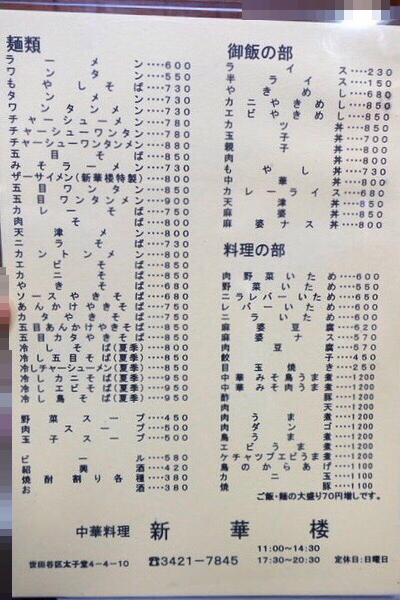 麺類
ラーメン‥‥600
ワンタン‥‥550
もやしそば‥‥730
タンメン‥‥730
ワンタンメン‥‥730
チャーシューメン‥‥780
チャーシューワンタン‥‥780
チャーシューワンタンメン‥‥880
五目そば‥‥850
みそラーメン‥‥730
ザーサイメン(新華楼特製)‥‥800
五目ワンタン‥‥850
五目ワンタンメン‥‥900
カレーそば‥‥750
肉そば‥‥750
天津メン‥‥800
ニラそば‥‥730
カントンメン‥‥800
エビそば‥‥850
カニそば‥‥850
やきそば‥‥680
ソースやきそば‥‥680
あんかけやきそば‥‥750
カタやきそば‥‥750
五目あんかけやきそば‥‥850
五目カタやきそば‥‥850
冷しそば(夏季)‥‥800
冷し五目そば(夏季)‥‥850
冷しチャーシューメン(夏季)‥‥850
冷しカニそば(夏季)‥‥950
冷しエビそば(夏季)‥‥950
冷し鳥そば(夏季)‥‥950
野菜スープ‥‥450
肉スープ‥‥500
玉子スープ‥‥500
ビール‥‥580
紹興酒‥‥420
焼酎割り各種‥‥380
お酒‥‥380
御飯の部
ライス‥‥230
半ライス‥‥150
やきめし‥‥680
カニやきめし‥‥850
エビやきめし‥‥850
カツ丼‥‥850
玉子丼‥‥700
親子丼‥‥800
肉丼‥‥800
もやし丼‥‥730
中華丼‥‥800
カレーライス‥‥680
天津丼‥‥850
麻婆丼‥‥850
麻婆ナス丼‥‥850
料理の部
肉野菜いため‥‥600
野菜いため‥‥550
ニラレバーいため‥‥650
レバーいため‥‥600
ニラいため‥‥600
麻婆豆腐‥‥620
麻婆ナス‥‥570
肉豆腐‥‥570
餃子‥‥450
目玉焼き‥‥250
中華みそ鳥うま煮‥‥1200
中華みそ肉うま煮‥‥1200
酢豚‥‥1200
肉天‥‥1200
肉うま煮‥‥1200
肉ダンゴ‥‥1200
鳥うま煮‥‥1200
エビうま煮‥‥1200
ケチャップエビうま煮‥‥1200
鳥のからあげ‥‥1100
カニ玉‥‥1100
焼豚‥‥1100
ご飯・麺の大盛り70円増しです。
中華料理 新華楼
世田谷区太子堂4-4-10 ☎3421-7845 11:00〜14:30
17:30〜20:30 定休日:日曜日